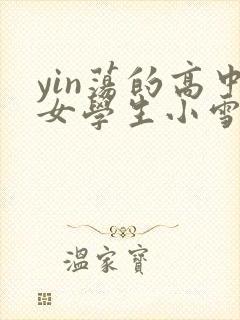 yin蕩的高中
女學生小雪
溫家寶